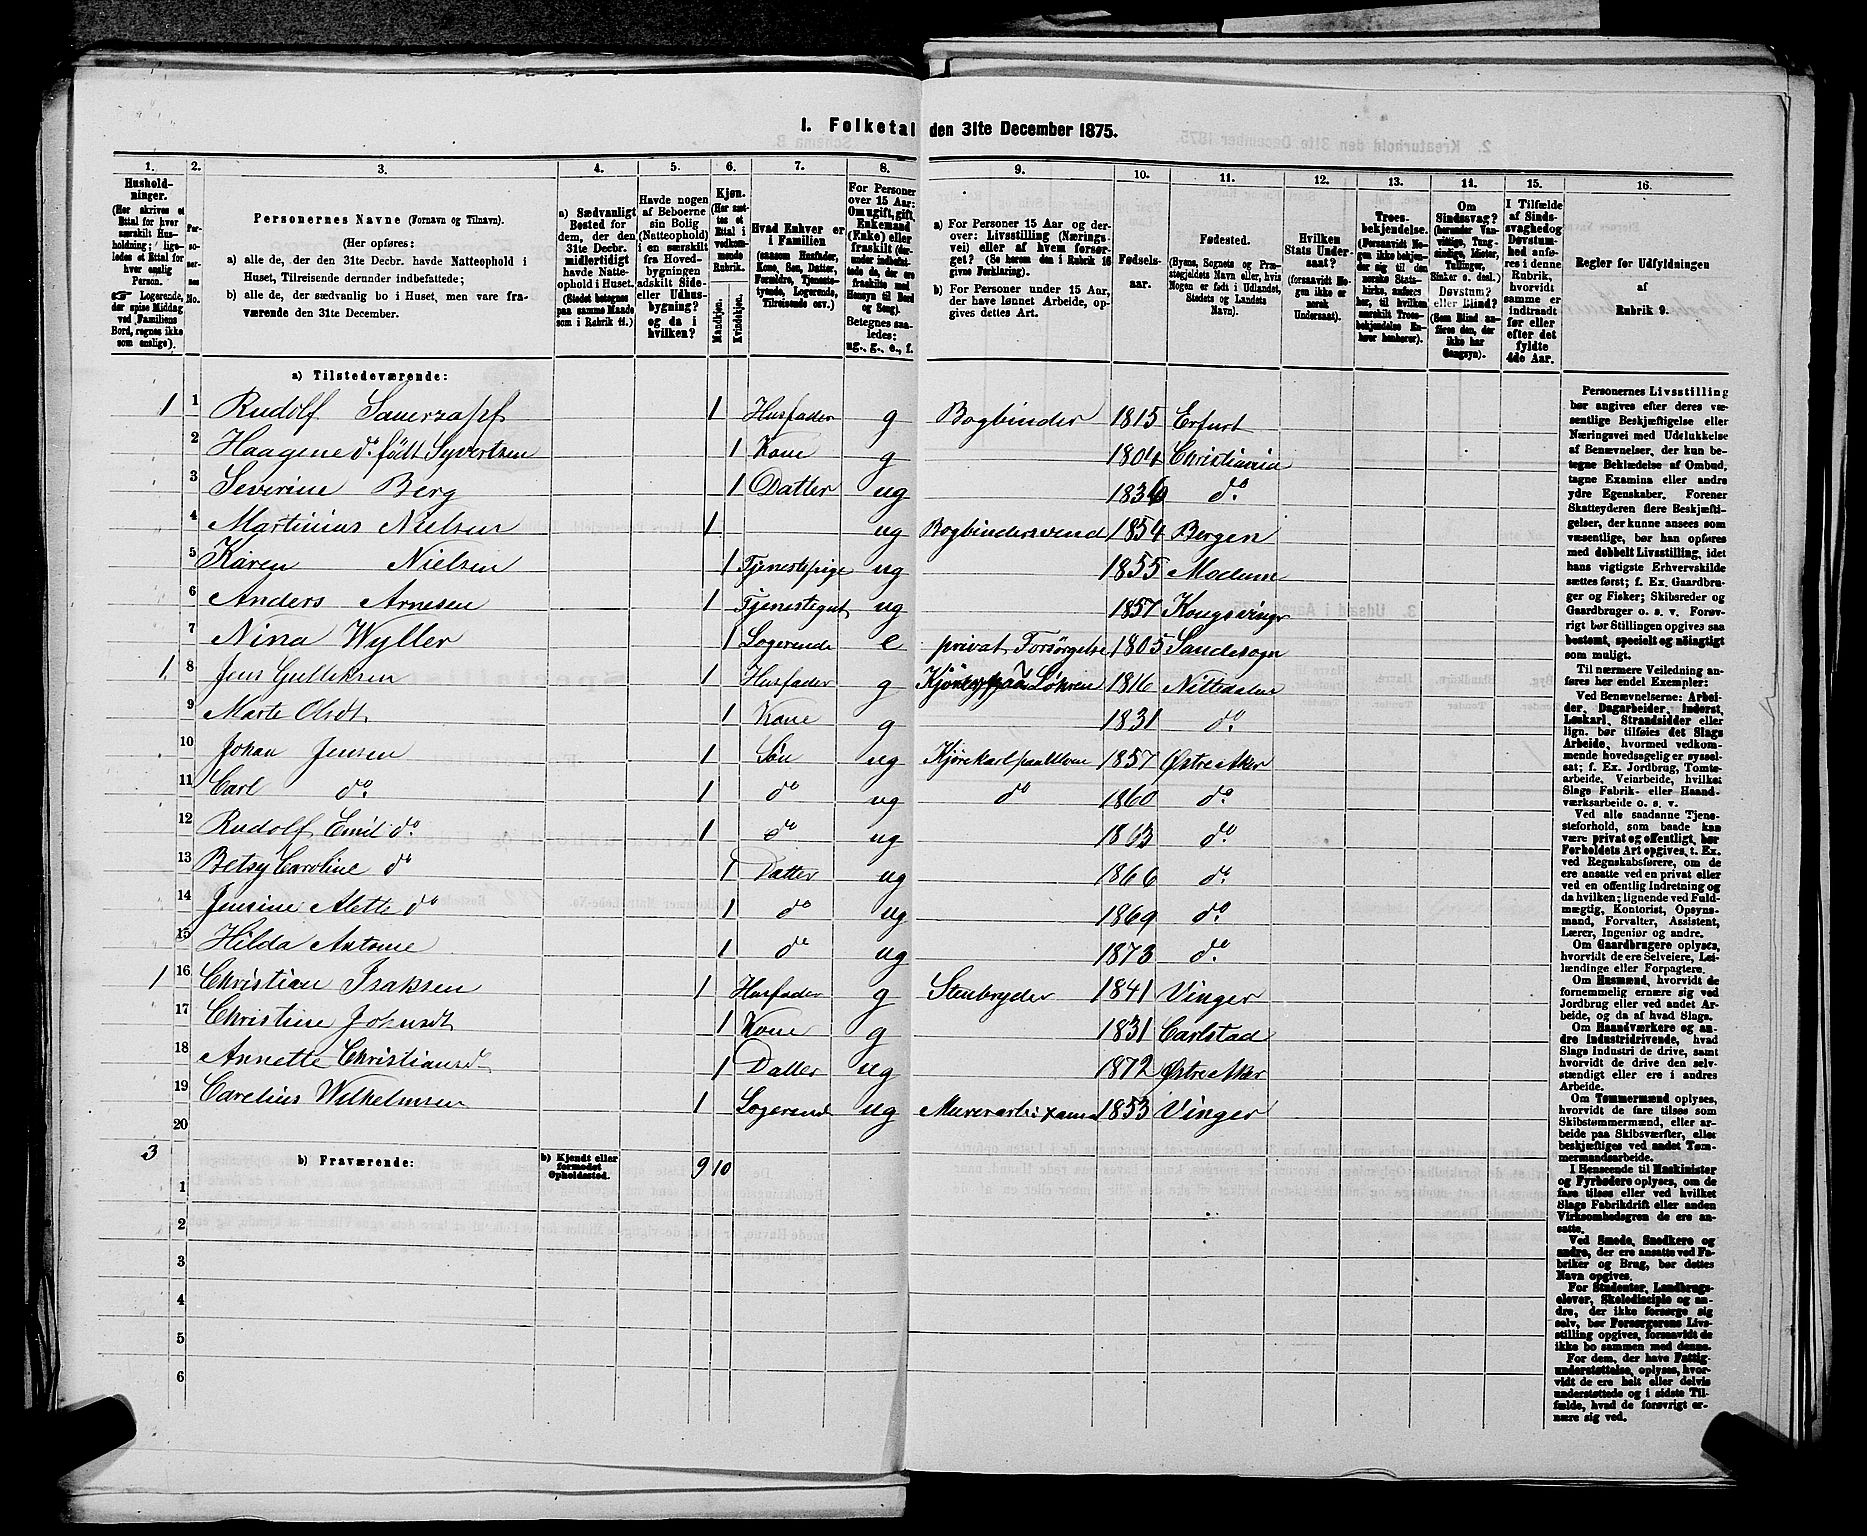 1. Folketal den 31te December 1875.
1. 2. 3. 4. 5. 6. 7. 8. 9. 10. 11. 12. 13. 14. 15. 16.
Hushold-
ninger.
(Her skrives et
Ettal for hver
særskilt Hus-
holdning; lige-
ledes et Ettal for
hver enslig
Person.
☞ Logerende,
der spise Middag
ved Familiens
Bord, regnes ikke
som enslige).
Per-
so-
ner-
nes
No.
Personernes Navne (Fornavn og Tilnavn).
(Her opføres:
a) alle de, der den 31te Decbr. havde Natteophold i
Huset, Tilreisende derunder indbefattede;
b) alle de, der sædvanlig bo i Huset, men vare fra-
værende den 31te December.
a) Sædvanligt
Bosted for
dem, der den
31te Decbr.
midlertidigt
havde Natte-
ophold i Huset.
(Stedet betegnes
paa samme Maade
som i Rubrik 11.)
Havde nogen
af Beboerne
sin Bolig
(Natteophold)
i en særskilt
fra Hoved-
bygningen
adskilt Side-
eller Udhus-
bygning?
og da i
hvilken?
Kjøn.
(Her sæt-
tes et
Ettal i
vedkom-
mende
Rubrik.
Mandkjøn.
Kvindekjøn.
Hvad Enhver er
i Familien
(saasom Husfader,
Kone, Søn, Datter,
Forældre, Tjeneste-
tyende, Logerende,
Tilreisende osv.)
For Personer
over 15 Aar:
Om ugift, gift,
Enkemand
(Enke) eller
fraskilt (der-
under indbefat-
tede de, der ere
fraskilte med
Hensyn til Bord
og Seng).
Betegnes saa-
ledes:
ug., g., e., f.
a) For Personer 15 Aar og der-
over: Livsstilling (Nærings-
vei) eller af hvem forsør-
get? (Se herom den i Rubrik 16
givne Forklaring).
b) For Personer under 15 Aar,
der have lønnet Arbeide, op-
gives dettes Art.
Fødsels-
aar.
Fødested.
(Byens, Sognets og Præ-
stegjeldets Navn eller, hvis
Nogen er født i Udlandet,
Stedets og Landets
Navn).
Hvilken
Stats Under-
saat?
(forsaavidt No-
gen ikke er
norsk
Undersaat).
Troes-
bekjendelse.
(Forsaavidt No-
gen ikke bekjen-
der sig til den
norske Stats-
kirke, anføres
her, til hvilken
særskilt Troes-
bekjendelse En-
hver henhører).
Om
Sindssvag?
(herunder Van-
vittige, Tung-
sindige, Idioter,
Tullinger,
Sinker o. desl.)
Døvstum?
eller Blind?
(Som Blind an-
føres den, der
ikke har
Gangsyn).
I Tilfælde
af Sinds-
svaghed og
Døvstum-
hed anfø-
res i denne
Rubrik,
hvorvidt
samme er
indtraadt
før eller
efter det
fyldte
4de Aar.
Regler for Udfyldningen
af
Rubrik 9.
a) Tilstedeværende:
1 1 Rudolf Sauerzapf 1 Husfader g Bogbinder 1815 Erfurt
2 Haagene do født Syvertsen 1 Kone g 1804 Christiania
3 Severine Berg 1 Datter ug 1836 do
4 Martinius Nielsen 1 ug Bogbindersvend 1854 Bergen
5 Karen Nielsen 1 Tjenestepige ug 1855 Modum
6 Anders Arnesen 1 Tjenestegut ug 1857 Kongsvinger
7 Nina Wyller 1 Logerende e privat Forsørgelse 1805 Sandesogn
1 8 Jens Gulliksen 1 Husfader g Løkken 1816 Nittedalen
9 Marte Olsdt 1 Kone g 1831 do
10 Johan Jensen 1 Søn ug Kjørekarl paa 1857 Østre Aker
11 Carl do 1 do ug do 1860 do
12 Rudolf Emil do 1 do ug 1863 do
13 Betsy Caroline do 1 Datter ug 1866 do
14 Jensine Alette do 1 do ug 1869 do
15 Hilda Antonie 1 do ug 1873 do
1 16 Christian Isaksen 1 Husfader g Stenbryder 1841 Vinger
17 Christine Johnsdt 1 Kone g 1831 Carlstad
18 Annette Christiansd 1 Datter ug 1872 Østre Aker
19 Carelius Wilhelmsen 1 Logerend ug 1853 Vinger
20
3 b) Fraværende: b) Kjendt eller
formodet
Opholdssted. 9 10
1
2
3
4
5
6
Personernes Livsstilling
bør angives efter deres væ-
sentlige Beskjæftigelse eller
Næringsvei med Udelukkelse
af Benævnelser, der kun be-
tegne Beklædelse af Ombud,
tagne Examina eller andre
ydre Egenskaber. Forener
Skatteyderen flere Beskjæfti-
gelser, der kunne ansees som
væsentlige, bør han opføres
med dobbelt Livsstilling, idet
hans vigtigste Erhvervskilde
sættes først; f. Ex. Gaardbru-
ger og Fisker; Skibsreder og
Gaardbruger o. s. v. Forøv-
rigt bør Stillingen opgives saa
bestemt, specielt og nøiagtigt
som muligt.
Til nærmere Veiledning an-
føres her endel Exempler:
Ved Benævnelserne: Arbei-
der, Dagarbeider, Inderst,
Løskarl, Strandsidder eller
lign. bør tilføies det Slags
Arbeide, hvormed vedkom-
mende hovedsagelig er syssel-
sat; f. Ex. Jordbrug, Tomte-
arbeide, Veiarbeide, hvilket
Slags Fabrik- eller Haand-
værksarbeide o. s. v.
Ved alle saadanne Tjene-
steforhold, som baade kan
være privat og offentligt, bør
Forholdets Art opgives, t. Ex.
ved Regnskabsførere, om de
ere ansatte ved en privat eller
ved en offentlig Indretning og
da hvilken; lignende ved Fuld-
mægtig, Kontorist, Opsyns-
mand, Forvalter, Assistent,
Lærer, Ingeniør og andre.
Om Gaardbrugere oplyses,
hvorvidt de ere Selveiere, Lei-
lændinge eller Forpagtere.
Om Husmænd, hvorvidt de
fornemmelig ernære sig ved
Jordbrug eller ved andet Ar-
beide, og da af hvad Slags.
Om Haandværkere og an-
dre Industridrivende, hvad
Slags Industri de drive, samt
hvorvidt de drive den selv-
stændigt eller ere i andres
Arbeide.
Om Tømmermænd oplyses,
hvorvidt de fare tilsøs som
Skibstømmermænd, eller ar-
beide paa Skibsværfter, eller
beskjæftiges ved andet Tøm-
mermandsarbeide.
I Henseende til Maskinister
og Fyrbødere oplyses, om de
fare tilsøs eller ved hvilket
Slags Fabrikdrift eller anden
Virksomhedsgren de ere an-
satte.
Ved Smede, Snedkere og
andre, der ere ansatte ved Fa-
briker og Brug, bør dettes
Navn opgives.
For Studenter, Landbrugs-
elever, Skoledisciple og an-
dre, der ikke forsørge sig
selv, bør Forsørgerens Livs-
stilling opgives, forsaavidt de
ikke bo sammen med denne.
For dem, der have Fattig-
understøttelse, oplyses, hvor-
vidt de ere helt eller delvis
understøttede og i sidste Til-
fælde, hvad de forøvrigt er-
nære sig ved.